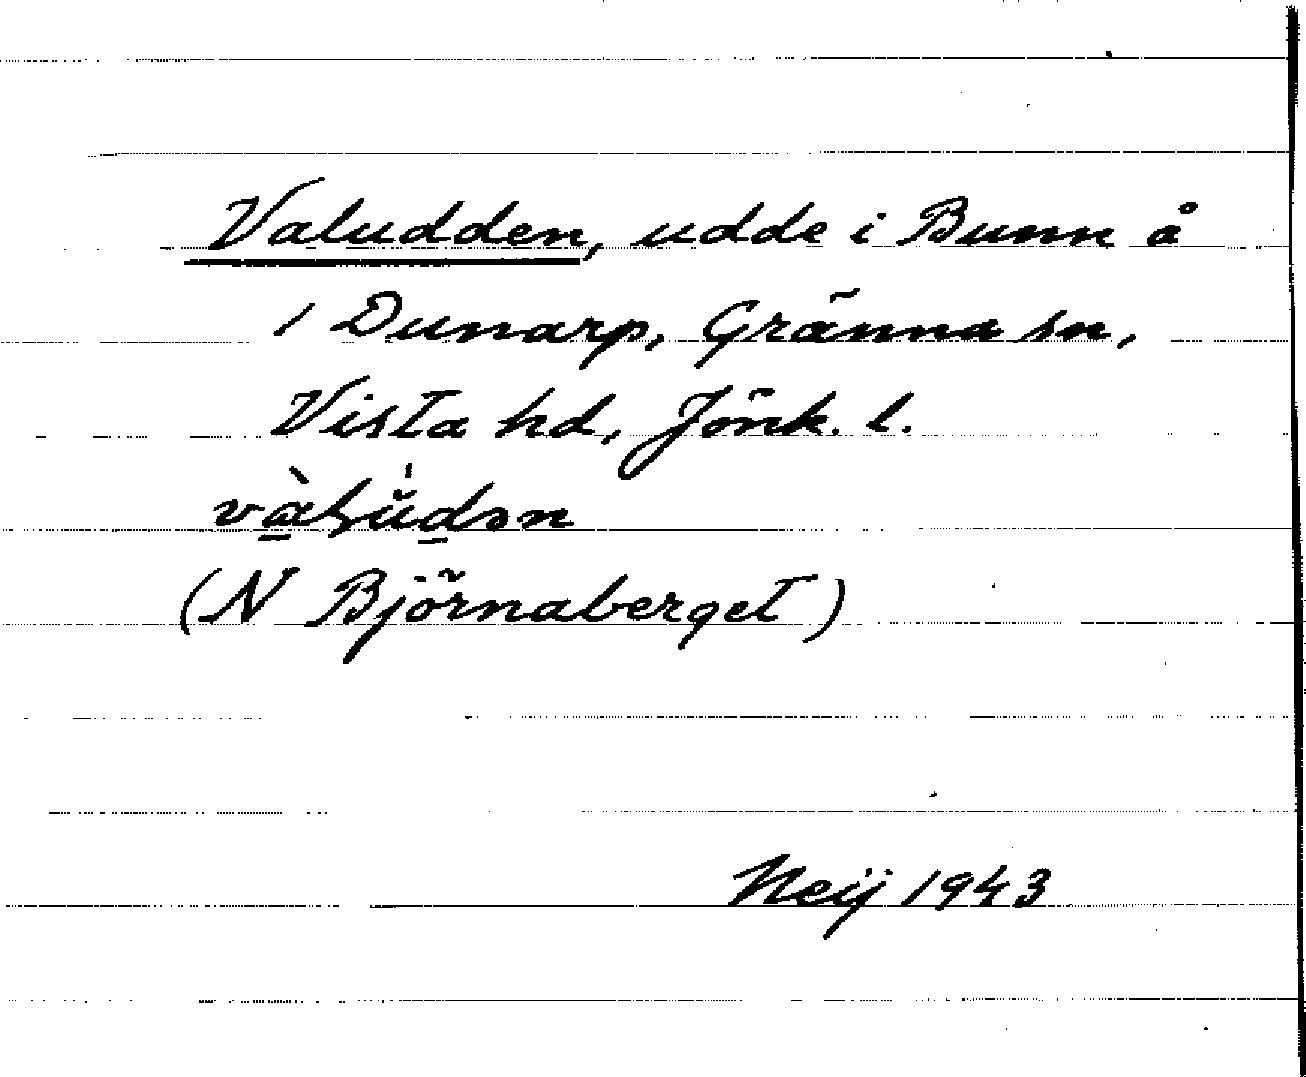 Valudden, udde i Bunn å
1 Dunarp, Gränna sn,
Vista hd, Jönk. l.
(N Björnaberget)
Neij 1943